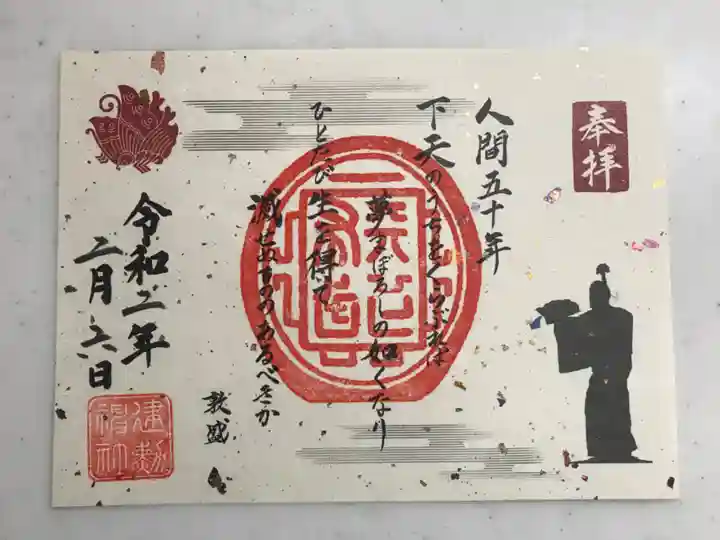 奉拝
人間五十年
下天のうちをくらぶれば
夢まぼろしの如くなり
ひとたび生を得て
滅せぬもののあるべきか
敦盛
令和二年
二月六日
建勲
神社